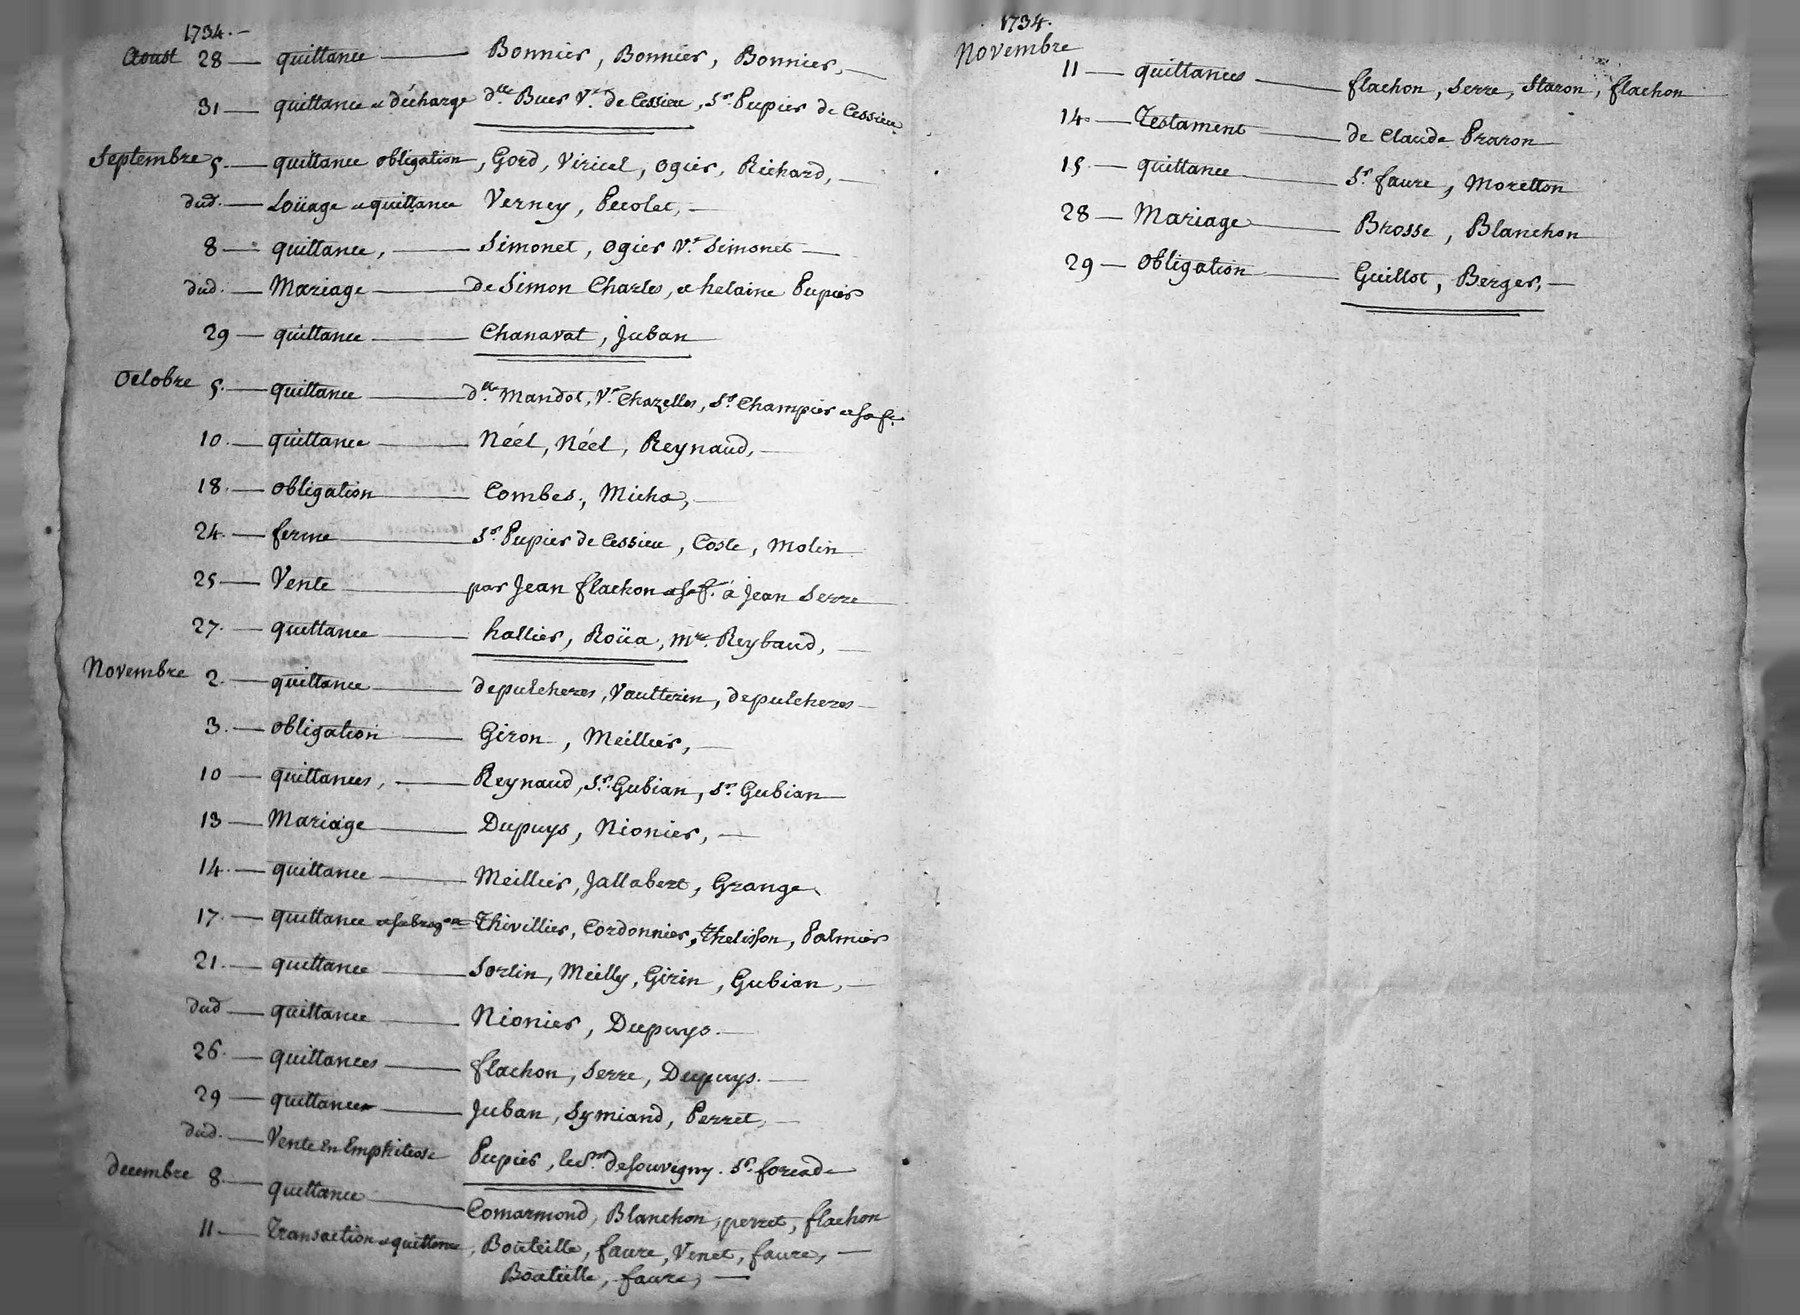 1734.
Aoust 28 — quittance — Bonnier, Bonnier, Bonnier, —
31 — quittance et décharge dlle. Buer Ve. de Cessieu, Sr. Pupier de Cessieu
Septembre 5. — quittance obligation, Gord, Viricel, Ogier, Richard, —
dud. — Loüage et quittance Verney, Pecolet, —
8 — quittance, — Simonet, Ogier Ve. Simonet —
dud. — Mariage — de Simon Charles, et helaine Pupier
29 — quittance — Chanavat, Juban
Octobre 5. — quittance — dlle. Mandot, Ve. Chazelles, Sr. Champier et sa fe.
10. — quittance — Néel, Néel, Reynaud, —
18. — obligation — Combes, Micha, —
24. — ferme — Sr. Pupier de Cessieu, Coste, Molin
25 — Vente — par Jean flachon et sa f. à Jean Serre
27. — quittance — hallier, Roüa, Mre. Reybaud, —
Novembre 2. — quittance — depulcheres, Vaulterin, depulcheres —
3. — obligation — Giron, Meillier, —
10 — quittances, — Reynaud, Sr. Gubian, Sr. Gubian
13 — Mariage — Dupuys, Nionier, —
14. — quittance — Meillier, Jallabert, Grange
17. — quittance et subrogon Thivillier, Cordonnier, Thelisson, Palmier
21. — quittance — Sorlin, Meilly, Girin, Gubian, —
dud — quittance — Nionier, Dupuys. —
26. — quittances — flachon, Serre, Dupuys. —
29 — quittances — Juban, Symiand, Perret, —
dud. — Vente en Emphiteose Pupier, le Sr. de Souvigny. Sr. forcade
decembre 8. — quittance — Comarmond, Blanchon, perret, flachon
11 — Transaction et quittance, Bouteille, faure, Venet, faure, —
Bouteille, faure, —
1734.
Novembre
11 — quittances — flachon, Serre, Staron, flachon
14. — Testament — de Claude Praron
15. — quittance — Sr. faure, Moretton
28 — Mariage — Brosse, Blanchon
29 — obligation — Guillot, Berger, —